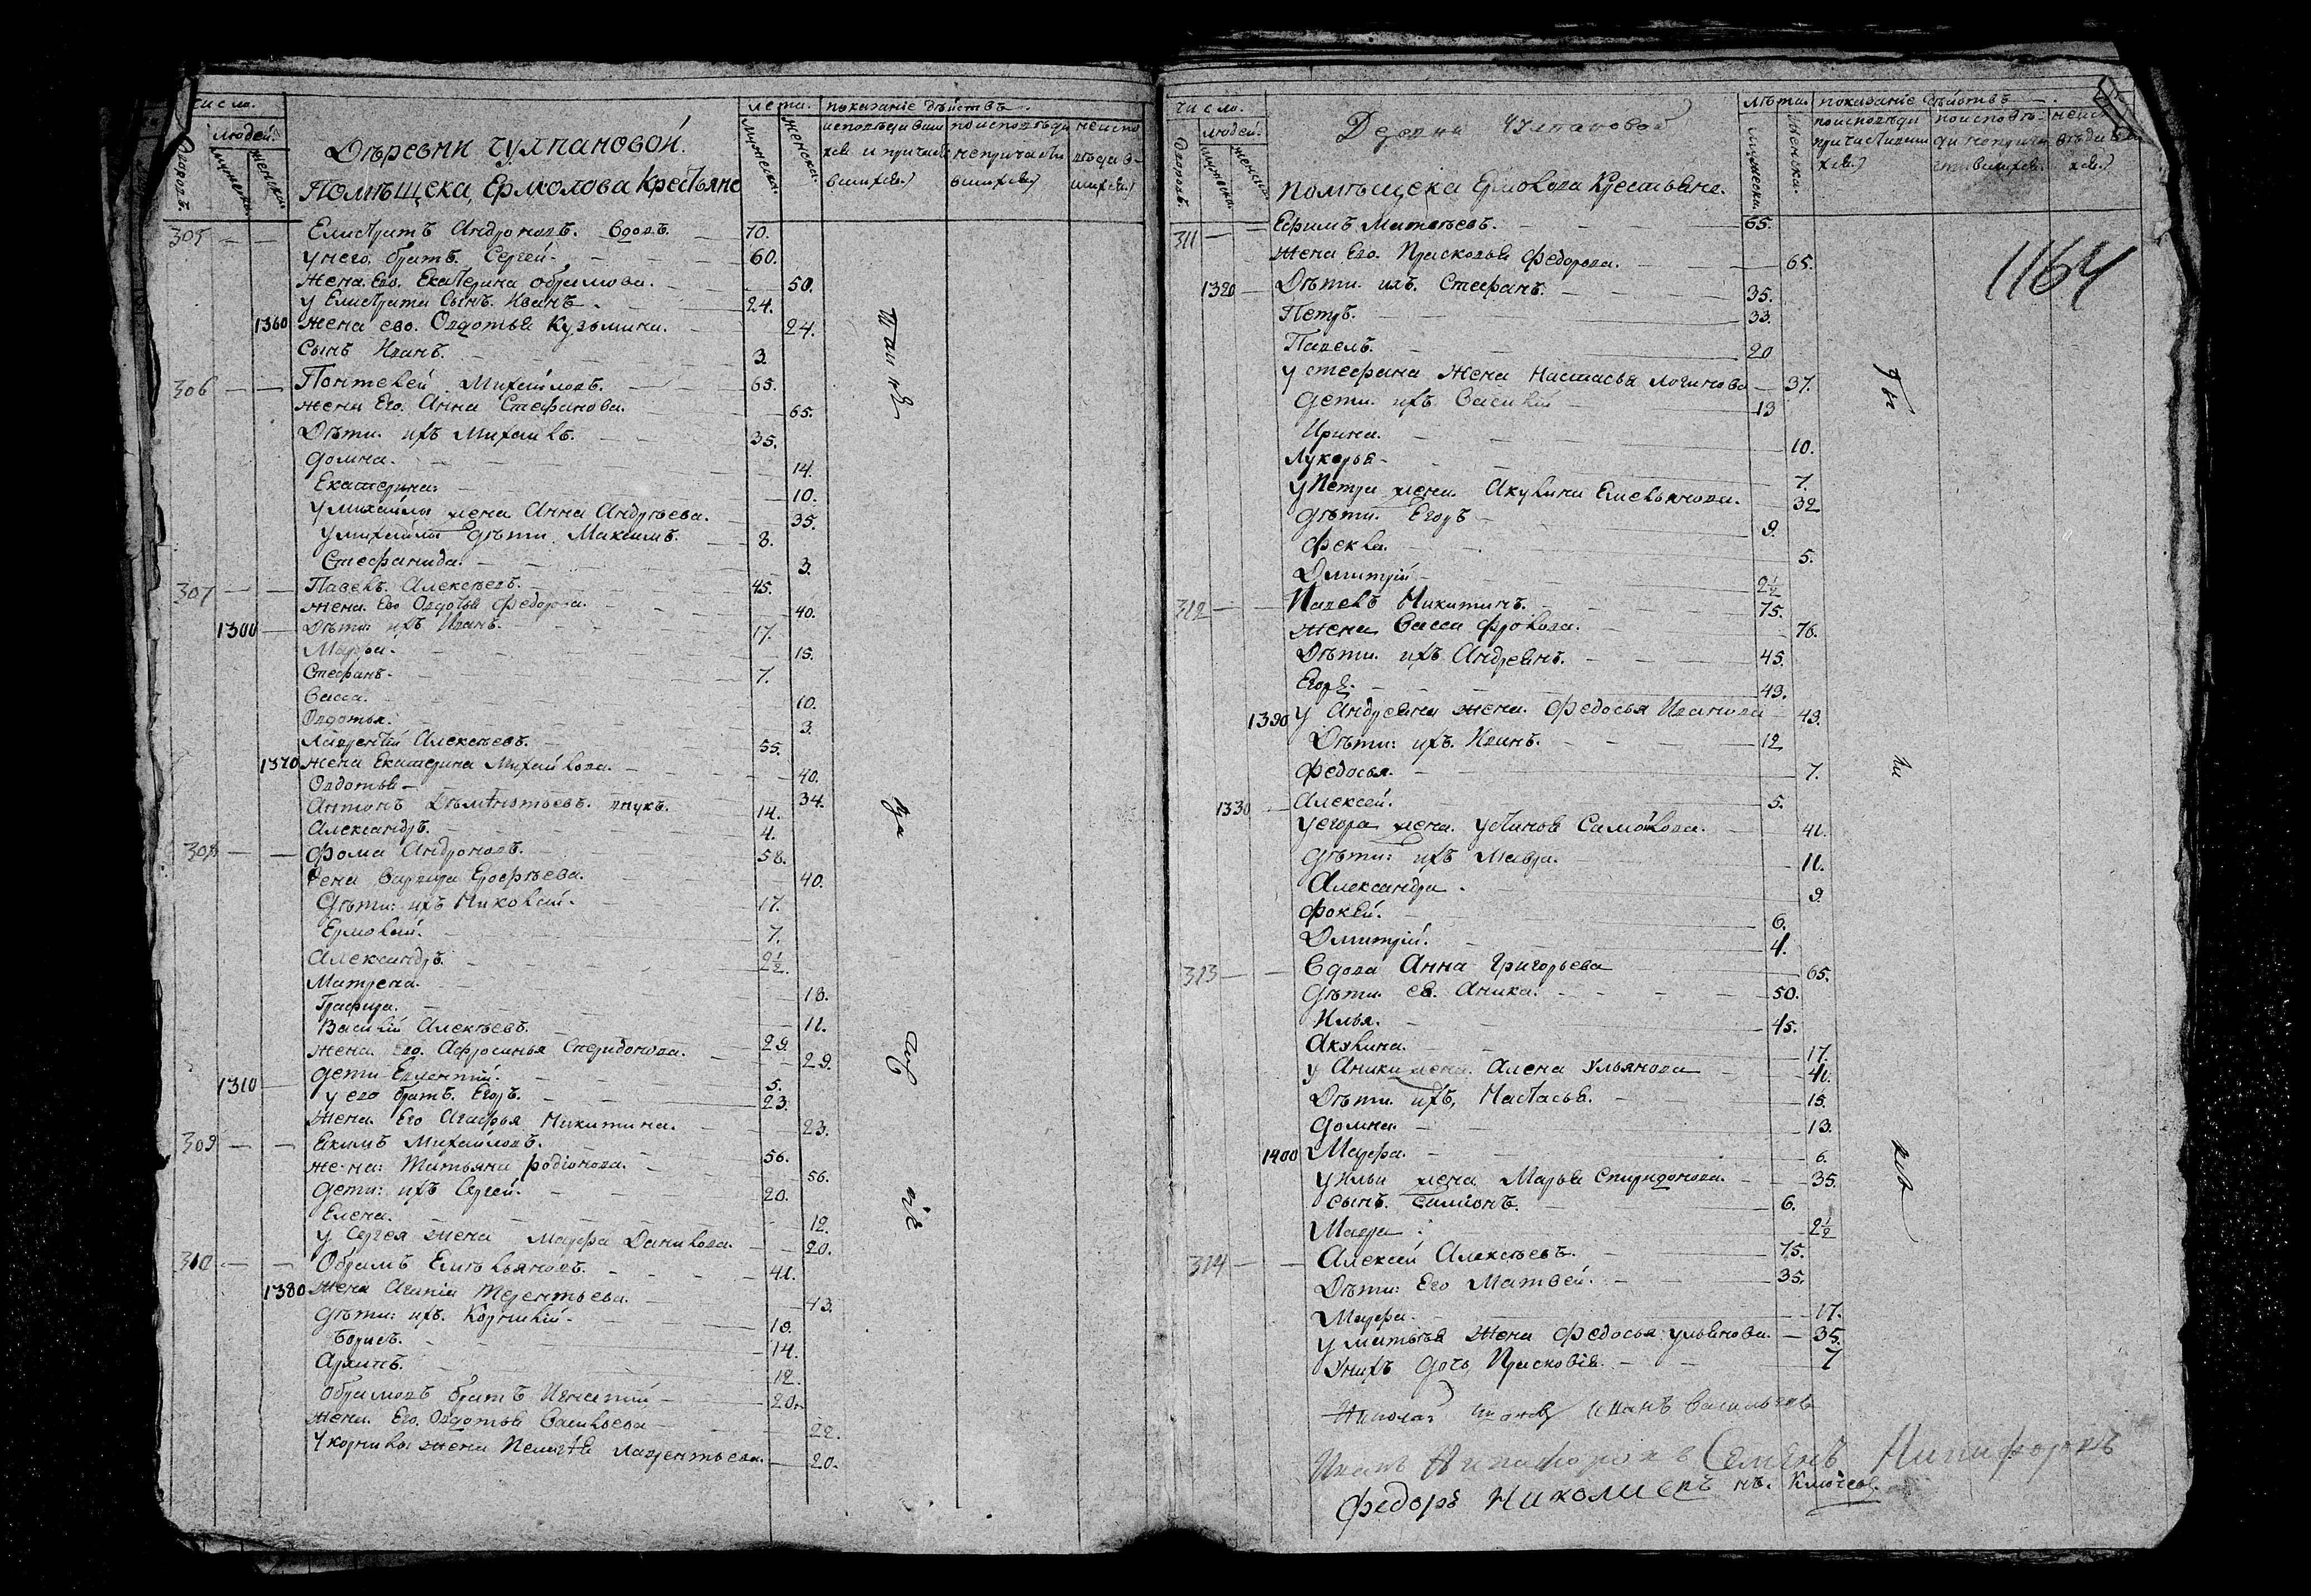 числа.
людей.
Дворовъ.
мужеска.
женска.
Дѣревни чулпановой.
Помѣщека, Ермолова Крестьяне
лета.
мужеска.
женска.
показаніе дѣйствъ
305 Елистратъ Андроновъ. вдовъ. 70.
у него братъ. Сергей. 60.
жена. Его. Екатерина обрамова. 50.
у Елистрата Сынъ. Иванъ. 24.
1360 жена ево. Овдотья Кузьмина. 24.
сынъ Иванъ. 3.
306 Пантелей Михайловъ. 65.
жена Его. Анна Стефанова. 65.
Дѣти. ихъ Михаилъ. 35.
домна. 14.
Екатерина. 10.
у михайлы жена Анна Андрѣева. 35.
у михайлы дѣти. Максимъ. 8.
Стефанида. 3.
307 Павелъ. Алексѣевъ. 45.
жена. Его Овдотья федорова. 40.
1300 Дѣти ихъ Иванъ. 17.
Марфа. 15.
Стефанъ. 7.
васса. 10.
Овдотья. 3.
Лаврентий Алексѣевъ. 55.
1370 жена Екатерина Михайлова. 40.
Овдотья 34.
Антонъ внукъ. 14.
Александръ. 4.
308 фома Андроновъ. 58.
жена варвара Ерофѣева. 40.
Дѣти: ихъ Николай. 17.
Ермолай. 7.
Александръ. 2½.
Матрена. 18.
11.
Василій Алексѣевъ. 29.
жена. Его. Афросинья Спиридонова. 29.
1310 дети 5.
у его братъ. Егоръ. 23.
жена. Его Агафья Никитина. 23.
309 Екимъ Михайловъ. 56.
жена: Татьяна родіонова. 56.
дети: ихъ Сергей. 20.
Елена. 12.
у Сергея жена Марфа Данилова. 20.
310 Обрамъ Емельяновъ. 41.
1380 жена Агапія Терентьева. 43.
дѣти: ихъ. Корнилій. 18.
Борисъ. 14.
Архипъ. 12.
Обрамовъ братъ Игнатий 20.
жена. Его. Овдотья Васильева 22.
у корнилы жена Пелагѣя Лаврентьева. 20.
числа.
людей.
Дворовъ.
мужеска.
женска.
Деревни Чулпановой
помѣщека Ермолова Крестьяне.
лѣта.
мужеска.
женска.
показаніе дѣйствъ
1164
311 Ефимъ Матвѣевъ. 65.
жена Его. Прасковья федорова. 65.
1320 Дѣти. ихъ. Стефанъ. 35.
Петръ. 33.
Павелъ. 20
у стефана жена Настасья логинова 37.
дети. ихъ. Василій 13
Ирина. 10.
Лукерья 7.
у Петра жена. Акулина Емельянова. 32
дѣти. Егоръ 9.
фекла. 5.
Дмитрій 2½
312 Павелъ Никитинъ. 75.
жена Васса фролова. 76.
Дѣти. ихъ Андреянъ. 45.
Егоръ. 43.
1390 у Андреяна жена. федосья Иванова 43.
Дѣти: ихъ. Иванъ. 12
федосья. 7.
1330 Алексей. 5.
у егора жена. устинья Самойлова. 41.
дѣти: ихъ Мавра. 11.
Александра. 9
фокѣй. 6.
Дмитрій. 4.
313 Вдова Анна Григорьева 65.
дѣти. ея. Аника. 50.
Илья. 45.
Акулина. 17.
у Аники жена. Алена Ульянова 41.
Дѣти. ихъ, Настасья. 15.
домна. 13.
1400 Марфа. 6.
у ильи жена Марья Спиридонова. 35.
сынъ. Симіонъ. 6.
Мавра. 2½
314 Алексей Алексѣевъ. 75.
Дѣти: Его Матвей. 35.
Марфа. 17.
у матвѣя жена федосья ульянова. 35.
унихъ дочь, Прасковія. 7
Иванъ Васильевъ
Иванъ Никифоровъ Семенъ Никифоровъ
федоръ Николаевъ нъ. Ключев.